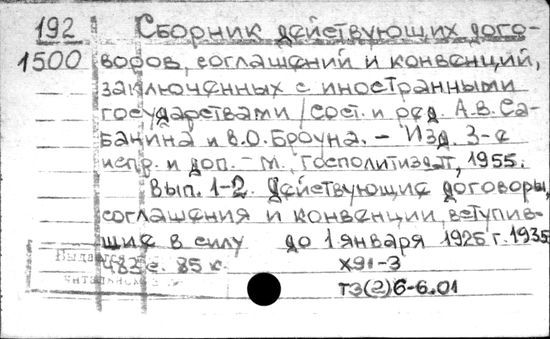 192 Сборник действующих дого-
1500 воров, соглашений и конвенций,
заключенных с иностранными
государствами / Сост. и ред. А.В. Са-
банина и В.О. Броуна. – Изд. 3-е
испр. и доп. – М., Госполитиздат, 1955.
Вып. 1-2. Действующие договоры,
соглашения и конвенции, вступив-
шие в силу до 1 января 1925 г. 1935
483 с. 85 к. X91-3
Выдается
ТЗ(2)6-6.01